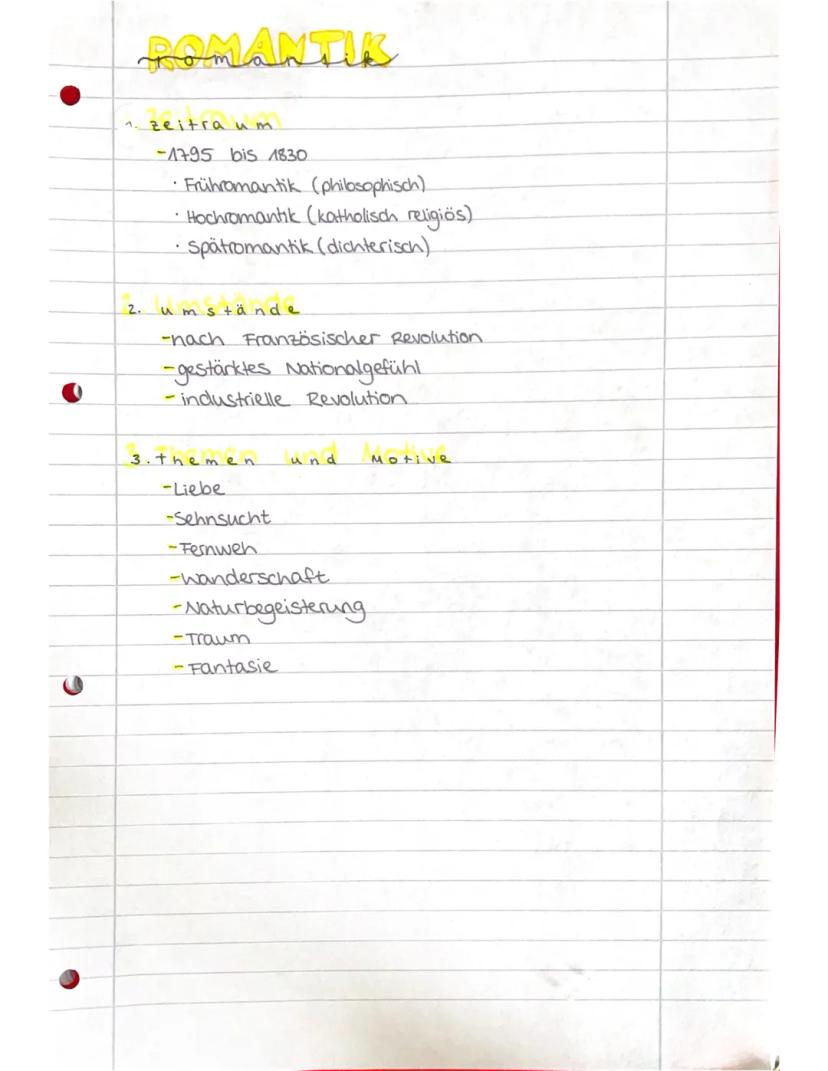 ROMANTIK
romantik
1. Zeitraum
-1795 bis 1830
· Frühromantik (philosophisch)
· Hochromantik (katholisch religiös)
· Spätromantik (dichterisch)
2. Umstände
-nach Französischer Revolution
-gestärktes Nationalgefühl
- industrielle Revolution
3. Themen und Motive
-Liebe
-Sehnsucht
-Fernweh
-Wanderschaft
-Naturbegeisterung
-Traum
-Fantasie